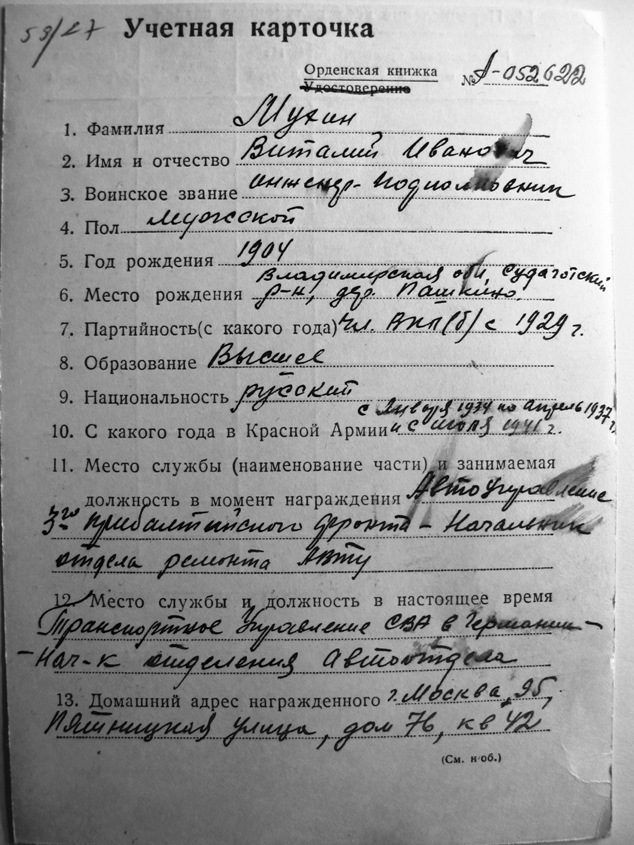 59/27 Учетная карточка
Орденская книжка
Удостоверение
№ А-052622
1. Фамилия Мухин
2. Имя и отчество Виталий Иванович
3. Воинское звание инженер-подполковник
4. Пол мужской
5. Год рождения 1904
Владимирская обл, Судогодский
6. Место рождения р-н, дер. Пашкино.
7. Партийность(с какого года) чл. ВКП(б) с 1929 г.
8. Образование Высшее
9. Национальность русский
с Января 1934 по апрель 1937 г.
10. С какого года в Красной Армии и с июля 1941 г.
11. Место службы (наименование части) и занимаемая
должность в момент награждения Автоуправление
3го Прибалтийского фронта – Начальник
отдела ремонта АВТУ
12. Место службы и должность в настоящее время
Транспортное Управление СВА в Германии –
– Нач-к отделения Автоотдела
13. Домашний адрес награжденного г. Москва, 95,
Пятницкая улица, дом 76, кв 42
(См. н об.)